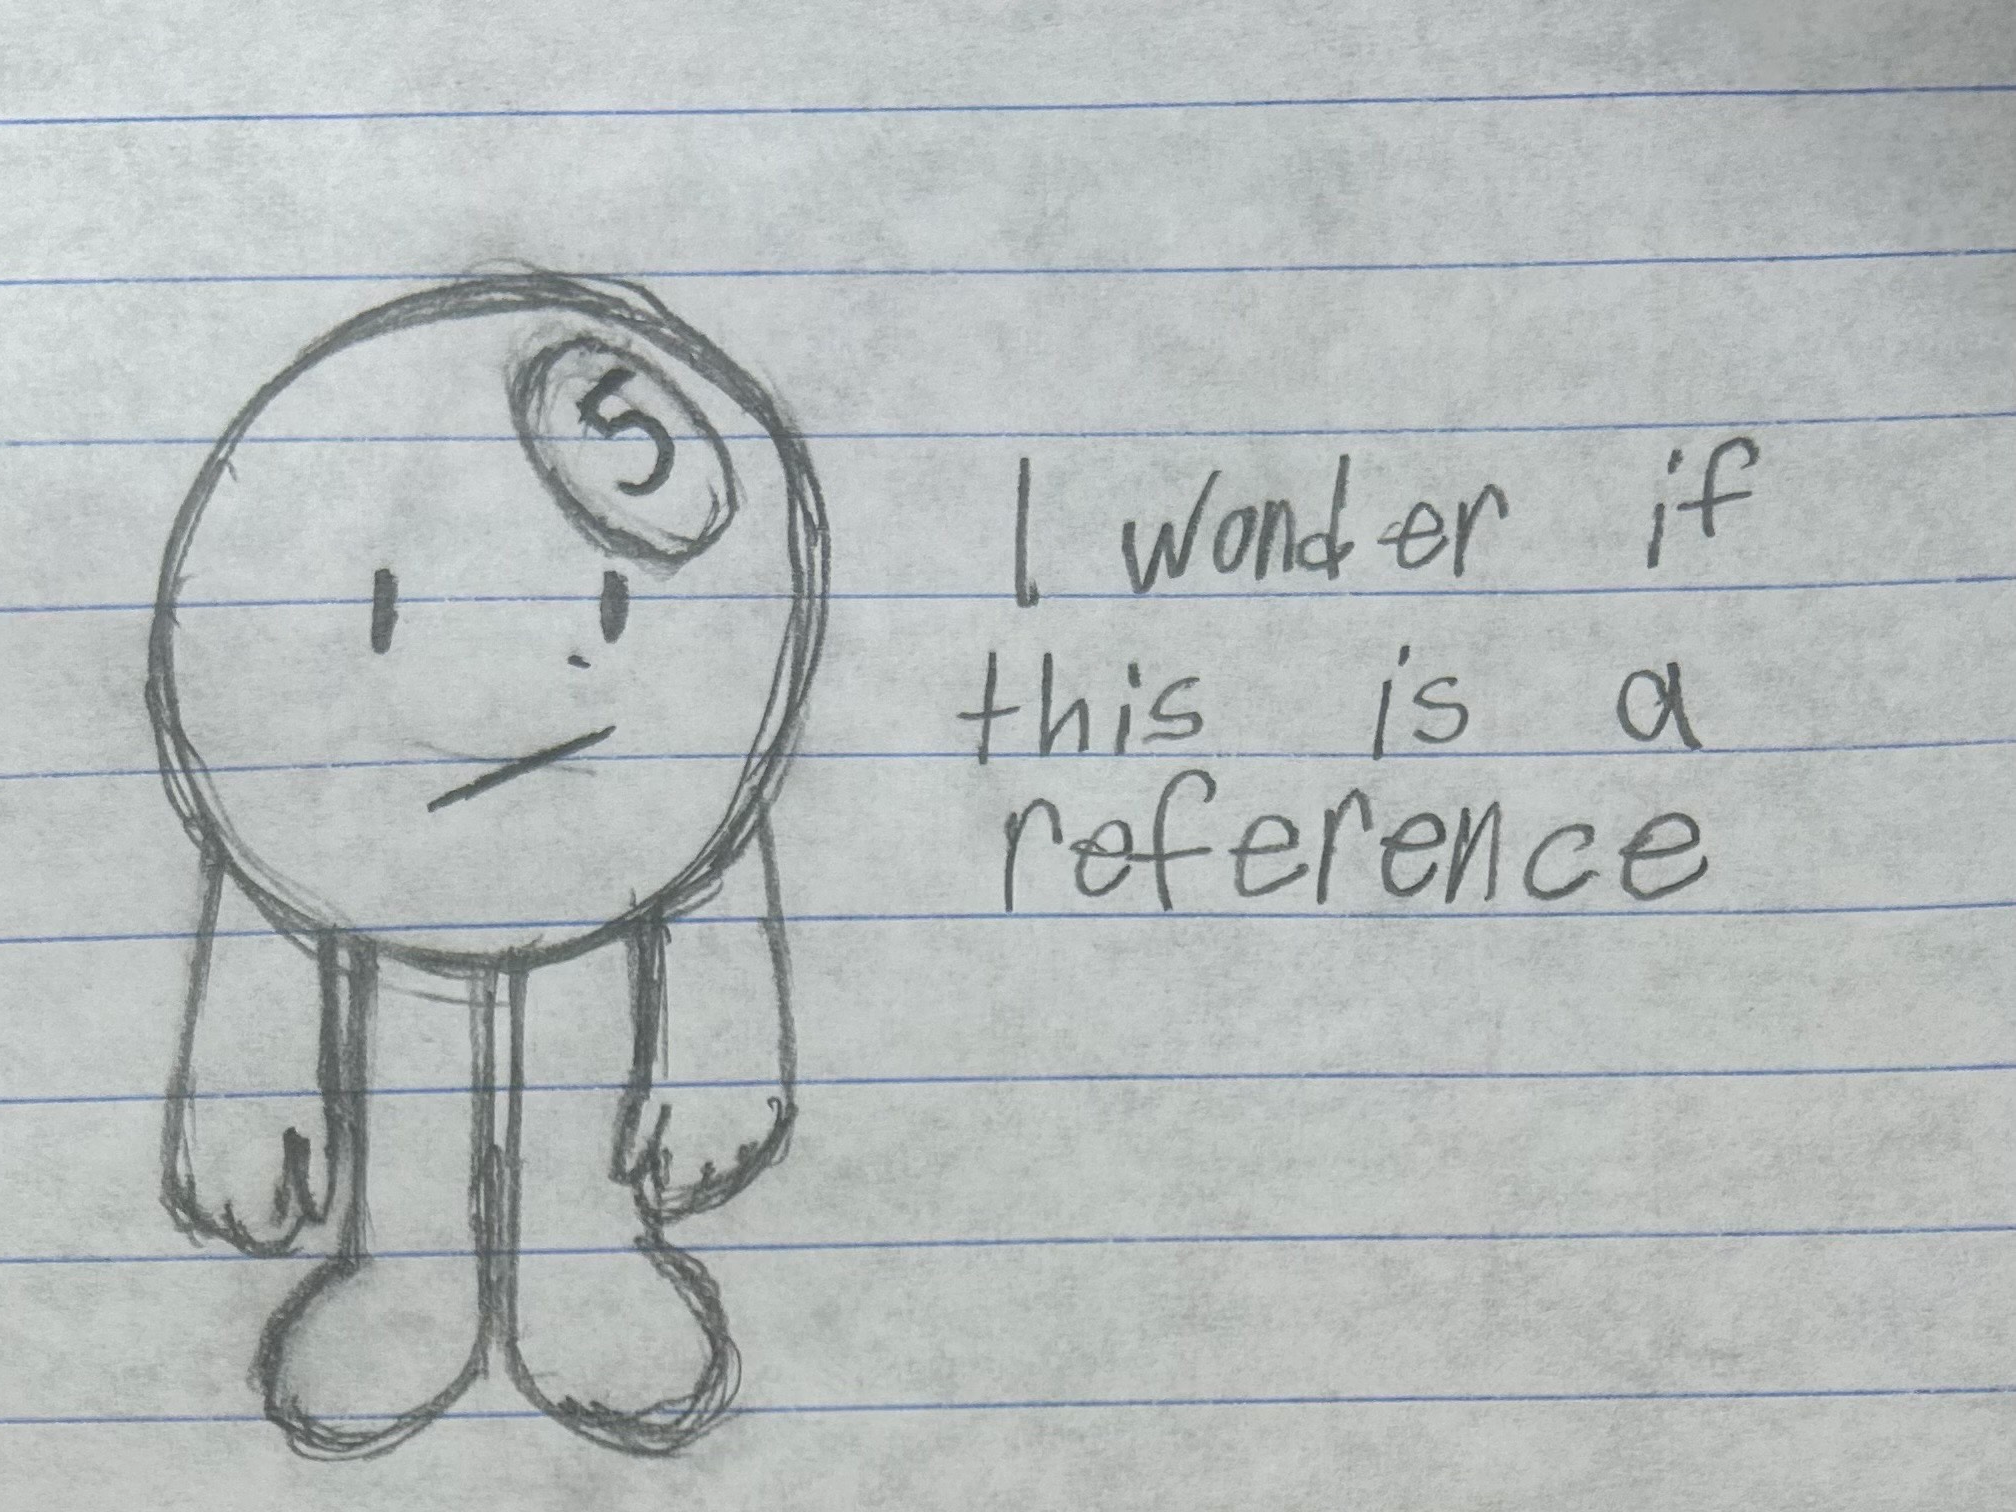 5
I wonder if
this is a
reference